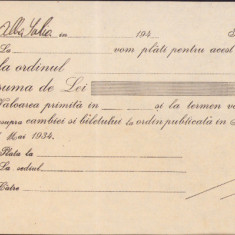 Alba Iulia in 194
La vom plăti pentru acest
la ordinul
suma de Lei
Valoarea primită in și la termen vo
supra cambiei și biletului la ordin publicată in
Mai 1934.
Plata la
La sediul
Către